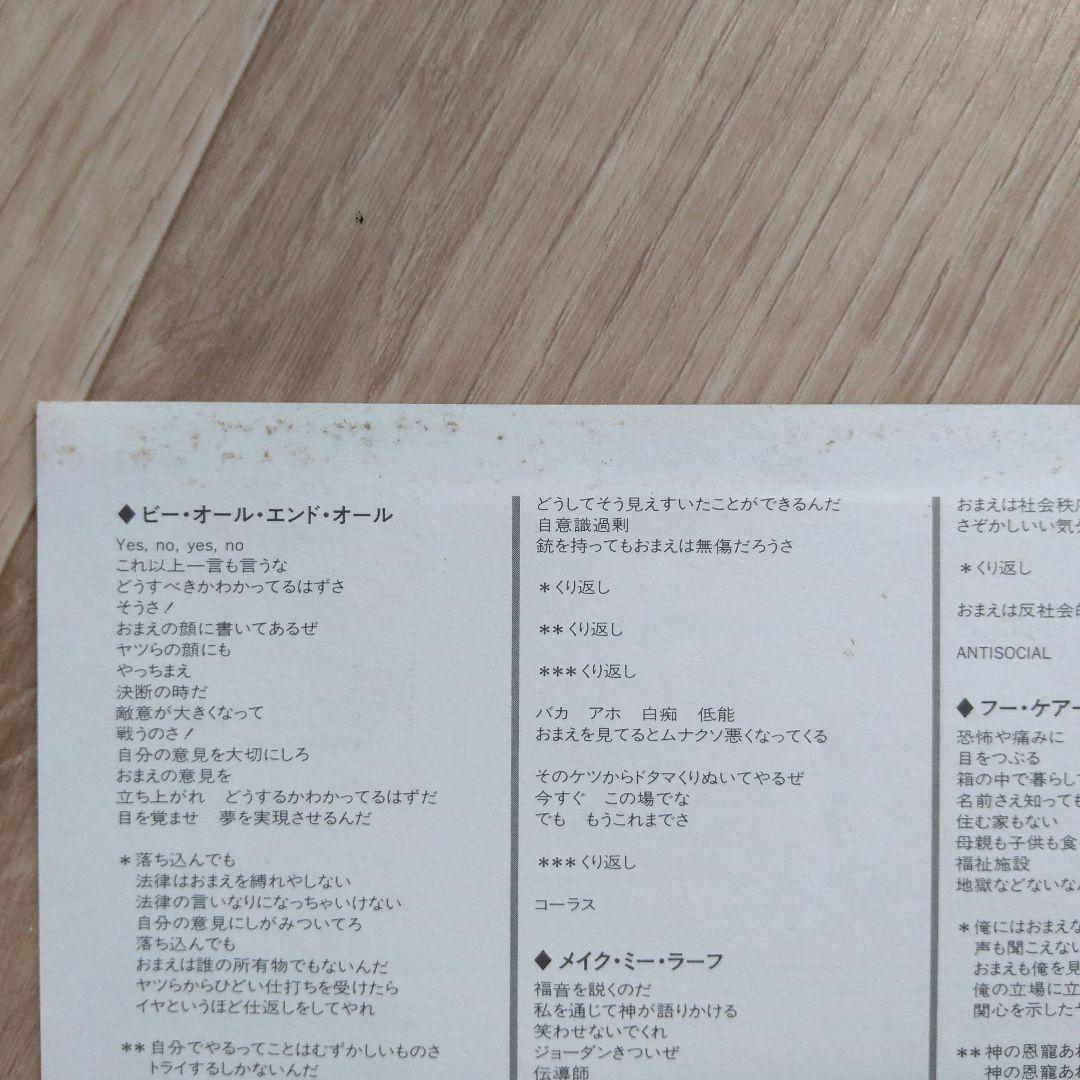 ◆ビー・オール・エンド・オール
Yes, no, yes, no
これ以上一言も言うな
どうすべきかわかってるはずさ
そうさ！
おまえの顔に書いてあるぜ
ヤツらの顔にも
やっちまえ
決断の時だ
敵意が大きくなって
戦うのさ！
自分の意見を大切にしろ
おまえの意見を
立ち上がれ　どうするかわかってるはずだ
目を覚ませ　夢を実現させるんだ
＊落ち込んでも
法律はおまえを縛れやしない
法律の言いなりになっちゃいけない
自分の意見にしがみついてろ
落ち込んでも
おまえは誰の所有物でもないんだ
ヤツらからひどい仕打ちを受けたら
イヤというほど仕返しをしてやれ
＊＊自分でやるってことはむずかしいものさ
トライするしかないんだ
どうしてそう見えすいたことができるんだ
自意識過剰
銃を持ってもおまえは無傷だろうさ
＊くり返し
＊＊くり返し
＊＊＊くり返し
バカ　アホ　白痴　低能
おまえを見てるとムナクソ悪くなってくる
そのケツからドタマくりぬいてやるぜ
今すぐ　この場でな
でも　もうこれまでさ
＊＊＊くり返し
コーラス
◆メイク・ミー・ラーフ
福音を説くのだ
私を通じて神が語りかける
笑わせないでくれ
ジョーダンきついぜ
伝導師
おまえは社会秩
さぞかしいい気
＊くり返し
おまえは反社会
ANTISOCIAL
◆フー・ケアー
恐怖や痛みに
目をつぶる
箱の中で暮らし
名前さえ知っても
住む家もない
母親も子供も食
福祉施設
地獄などないな
＊俺にはおまえ
声も聞こえない
おまえも俺を見
俺の立場に立
関心を示した
＊＊神の恩寵あ
神の恩寵あ